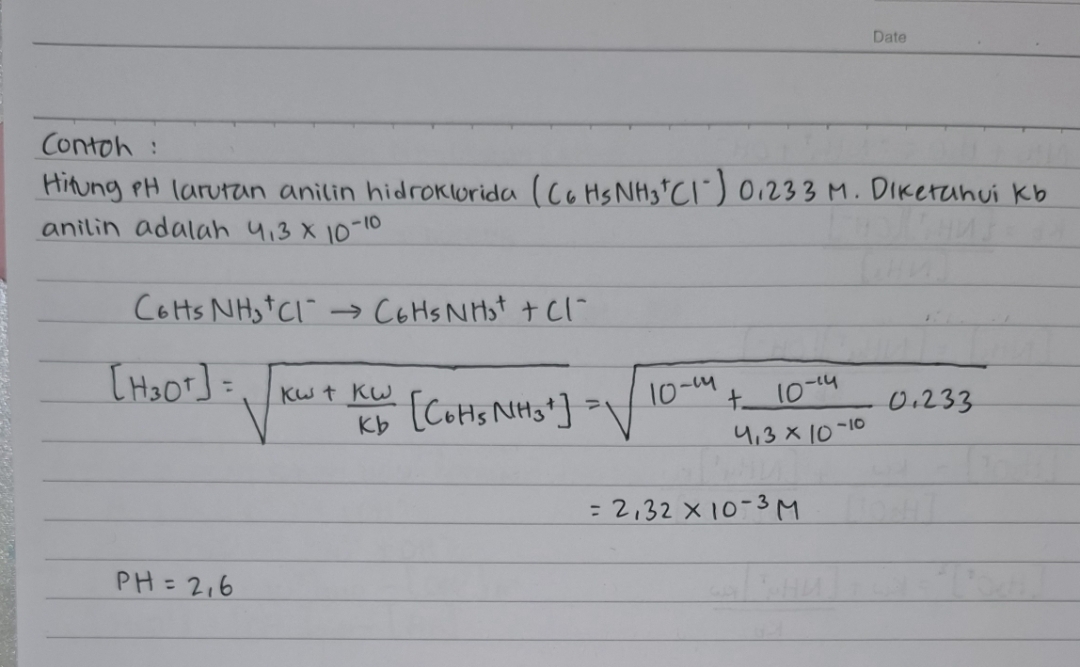 Date
Contoh :
Hitung pH larutan anilin hidroklorida (C6H5NH3⁺Cl⁻) 0,233 M. Diketahui Kb
anilin adalah 4,3 × 10⁻¹⁰
C6H5NH3⁺Cl⁻ → C6H5NH3⁺ + Cl⁻
[H3O⁺] = √(Kw + Kw/Kb [C6H5NH3⁺]) = √(10⁻¹⁴ + 10⁻¹⁴/4,3 × 10⁻¹⁰ 0,233)
= 2,32 × 10⁻³ M
PH = 2,6